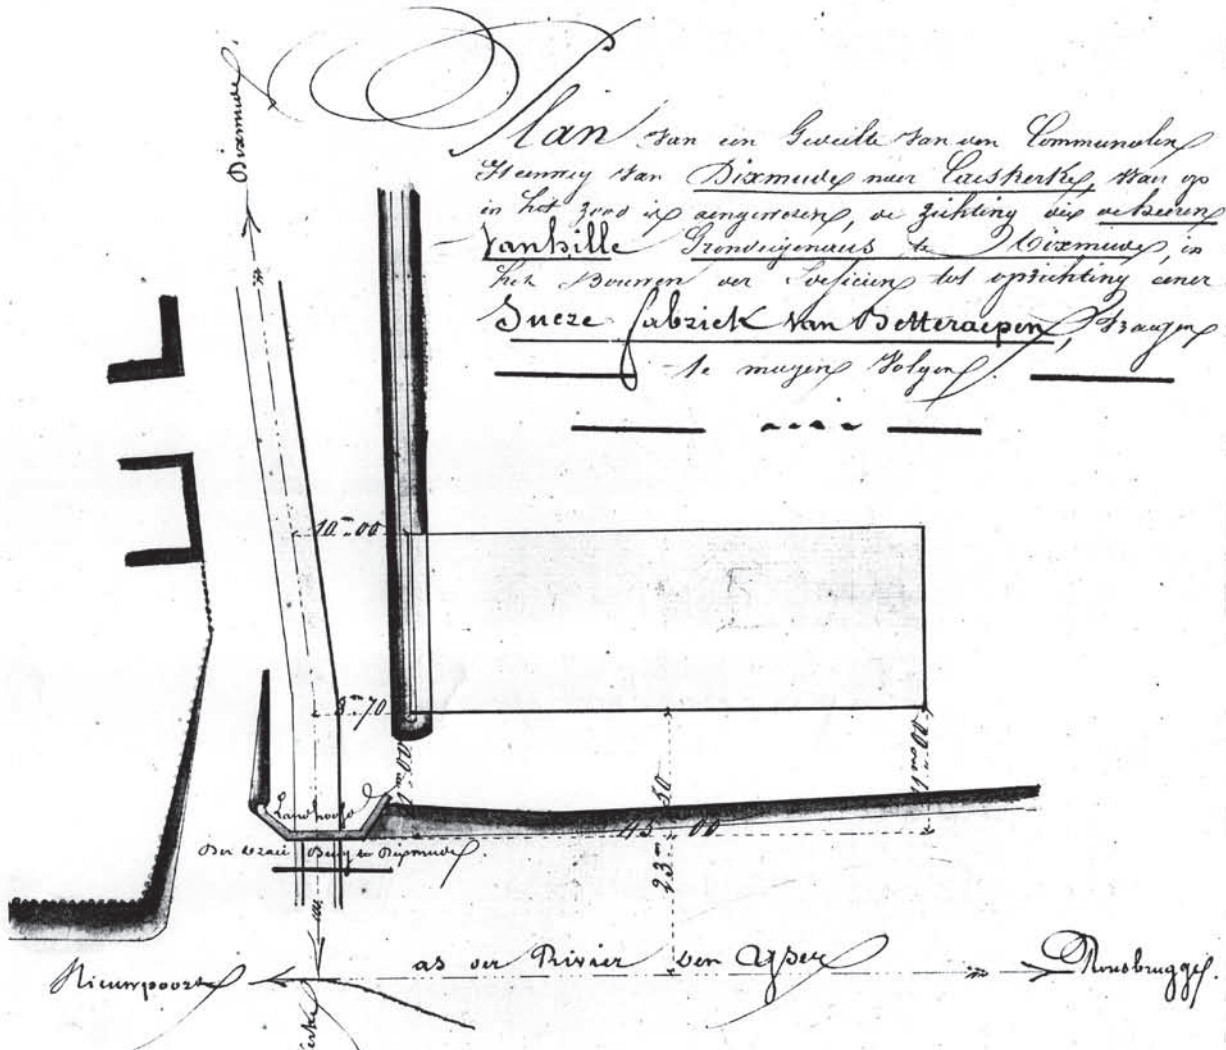 Dixmude.
Plan van een Gedeelte van den Communalen
Steenweg van Dixmude naer Caeskerke, waer op
in het rood is aengewesen, de zichting die de heeren
Vanhille Grondeigenaers te Dixmude, in
het Bouwen der tot oprichting eener
Sucre fabriek van Betteraepen, vraegen
te mogen volgen.
10.m00
F
3.m70
Landhoofd
45.00
der Draei Brug te Dixmude.
as der Rivier den Yser
Nieuwpoort
Rousbrugge.